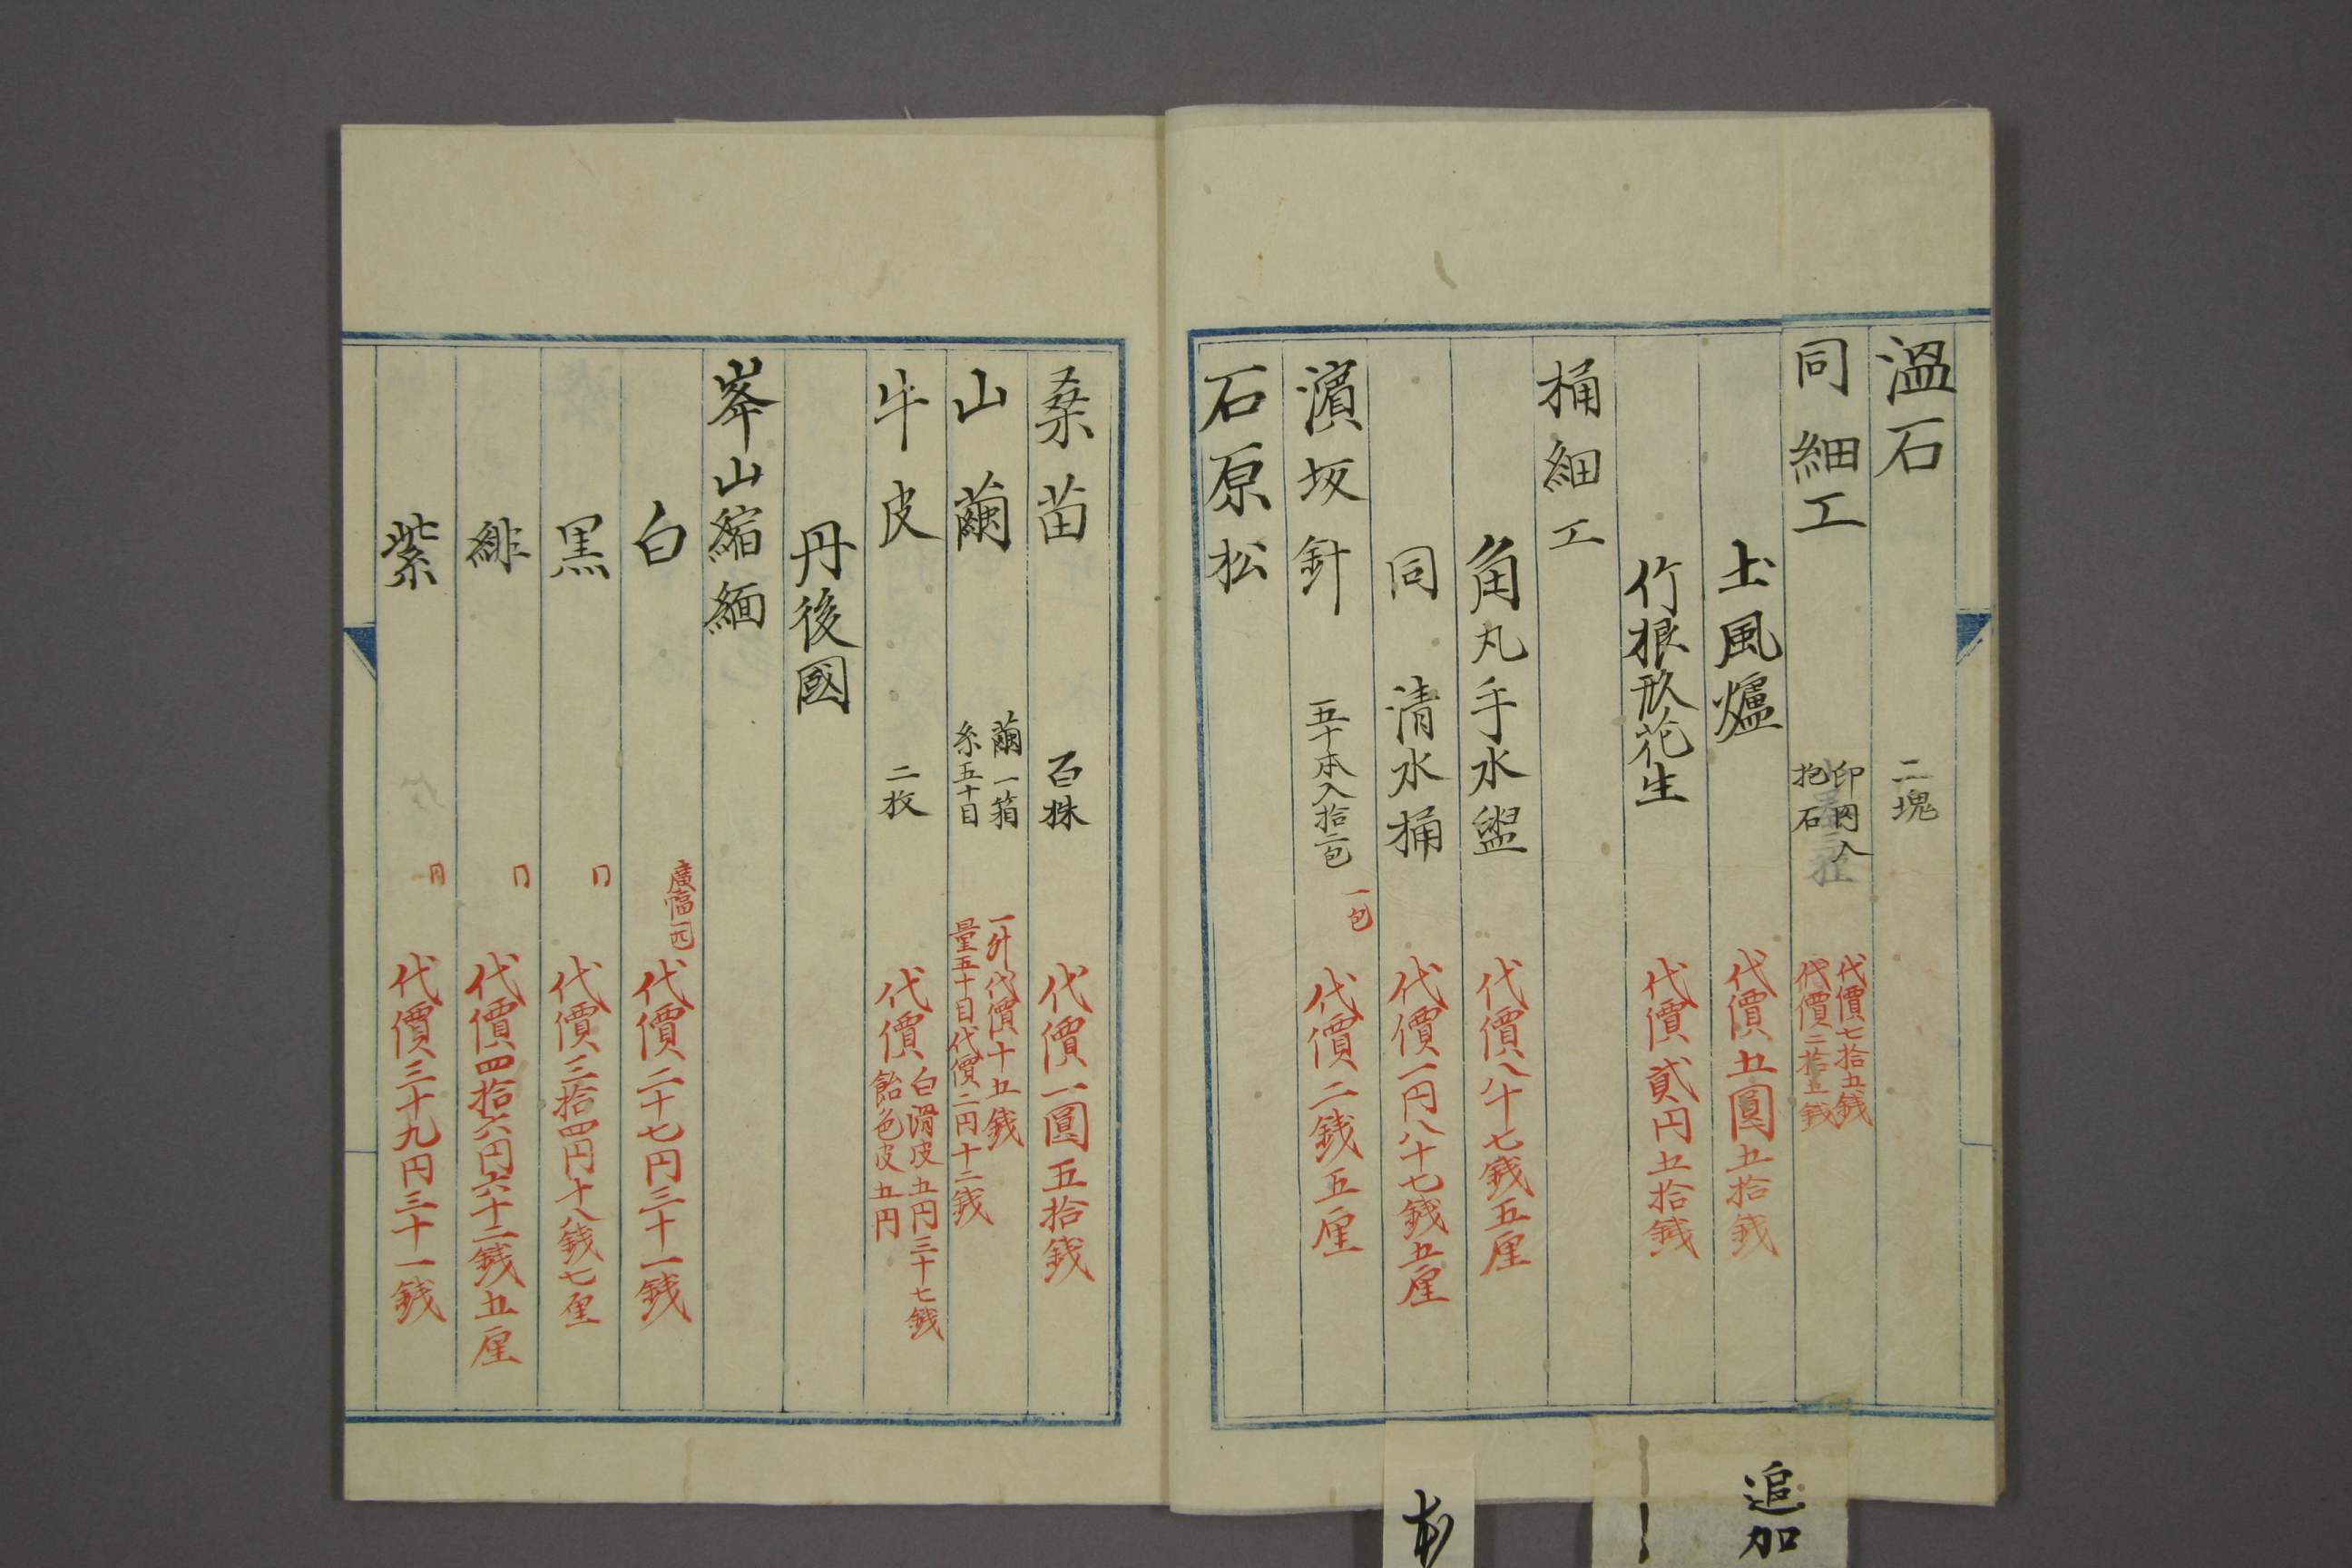 温石 二塊
同細工 印肉入 代價七拾五銭
抱石 代價二拾五銭
土風爐 代價五圓五拾銭
竹根形花生 代價貳円五拾銭
桶細工
角丸手水盥 代價八十七銭五厘
同 清水桶 代價一円八十七銭五厘
濱坂針 五十本入拾二包 一包 代價二銭五厘
石原松
桑苗 百株 代價一圓五拾銭
山繭 繭一箱 一升代價十五銭
糸五十目 量五十目代價二円十二銭
牛皮 二枚 代價 白滑皮五円三十七銭
飴色皮五円
丹後國
峯山縮緬
白 廣幅一匹 代價二十七円三十一銭
黒 〃 代價三拾四円十八銭七厘
緋 〃 代價四拾六円六十二銭五厘
紫 同 代價三十九円三十一銭
追加